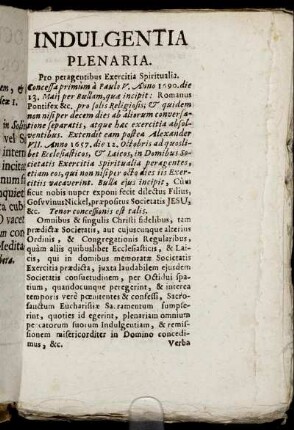 INDULGENTIA
PLENARIA.
Pro peragentibus Exercitia Spiritualia.
Concessa primùm à Paulo V. Anno 1690. die
13. Maij per Bullam, quæ incipit: Romanus
Pontifex &c. pro solis Religiosis; & quidem
non nisi per decem dies ab aliorum conversa-
tione separatis, atque hæc exercitia absol-
ventibus. Extendit eam postea Alexander
VII. Anno 1657. die 12. Octobris ad quosli-
bet Ecclesiasticos, & Laicos, in Domibus So-
cietatis Exercitia Spiritualia peragentes,
etiam eos, qui non nisi per octo dies iis Exer-
citiis vacaverint. Bulla ejus incipit, Cùm
sicut nobis nuper exponi fecit dilectus Filius,
Gosvvinus Nickel, præpositus Societatis JESU,
&c. Tenor concessionis est talis.
Omnibus & singulis Christi fidelibus, tam
prædictæ Societatis, aut cujuscunque alterius
Ordinis, & Congregationis Regularibus,
quàm aliis quibuslibet Ecclesiasticis, & La-
cis, qui in domibus memoratæ Societatis
Exercitia prædicta, juxta laudabilem ejusdem
Societatis consuetudinem, per Octidui spa-
tium, quandocunque peregerint, & interea
temporis verè pœnitentes & confessi, Sacro-
sanctum Eucharistiæ Sacramentum sumpse-
rint, quoties id egerint, plenariam omnium
peccatorum suorum Indulgentiam, & remis-
sionem misericorditer in Domino concedi-
mus, &c. Verba